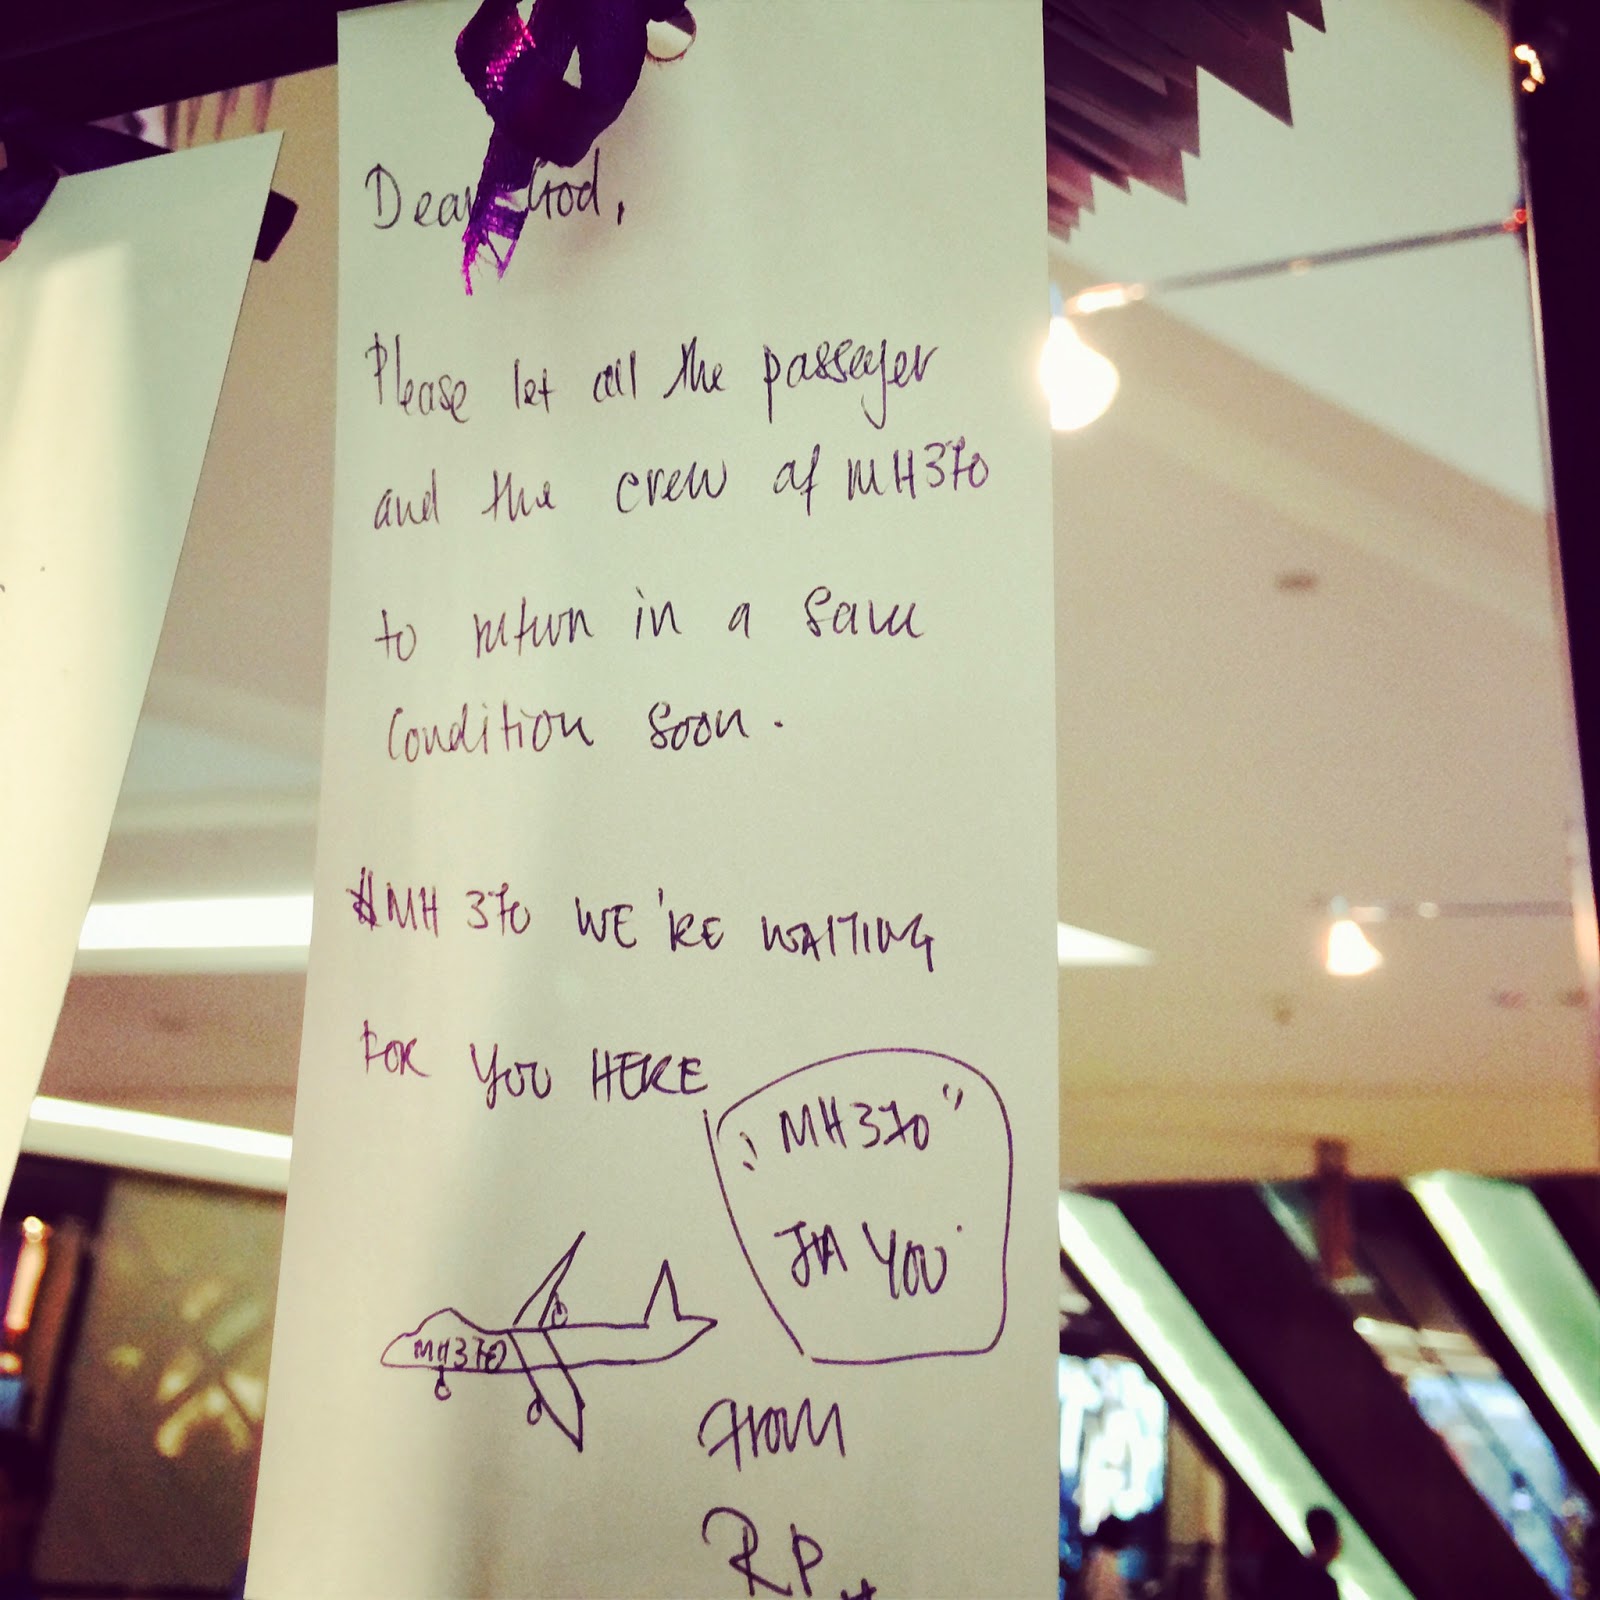 Dear God,
Please let all the passeger
and the crew of MH370
to return in a same
condition soon.
#MH370 WE'RE WAITING
FOR YOU HERE
"MH370"
JIA YOU
MH370
from
RP